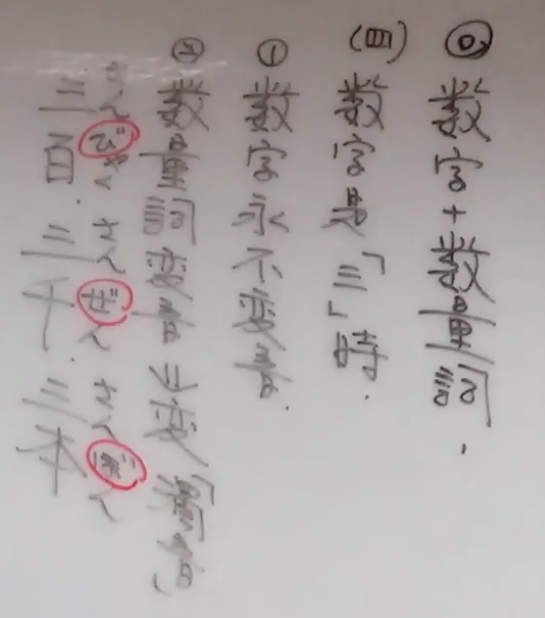 ◎数字+数量詞.
(四)数字是「三」時.
①数字永不変音.
②数量詞変音必変「濁音」
さんびゃく さんぜん さんぼん
三百.三千.三本